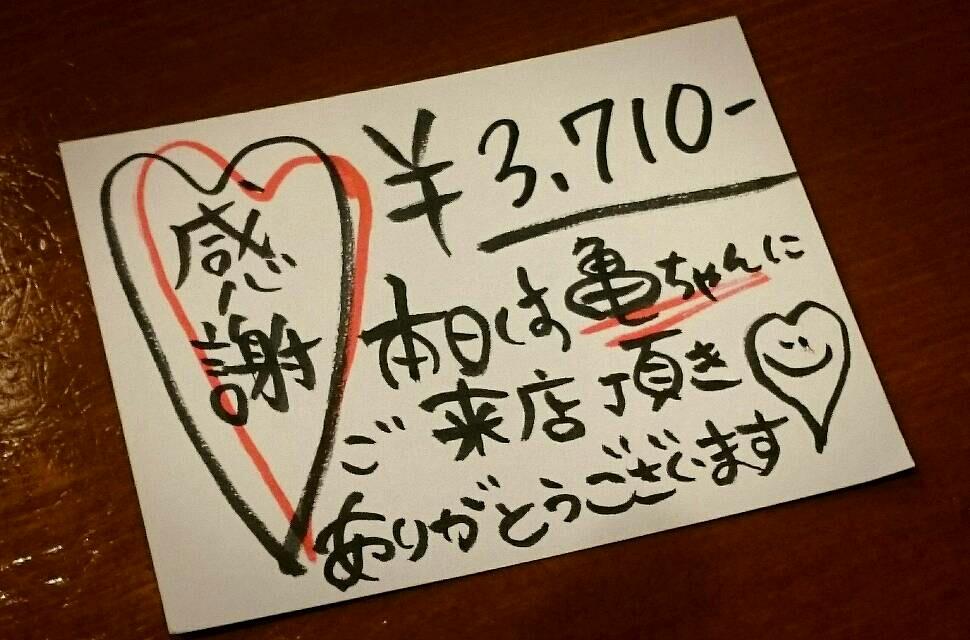 感謝
¥3,710-
本日は亀ちゃんに
ご来店頂き
ありがとうございます